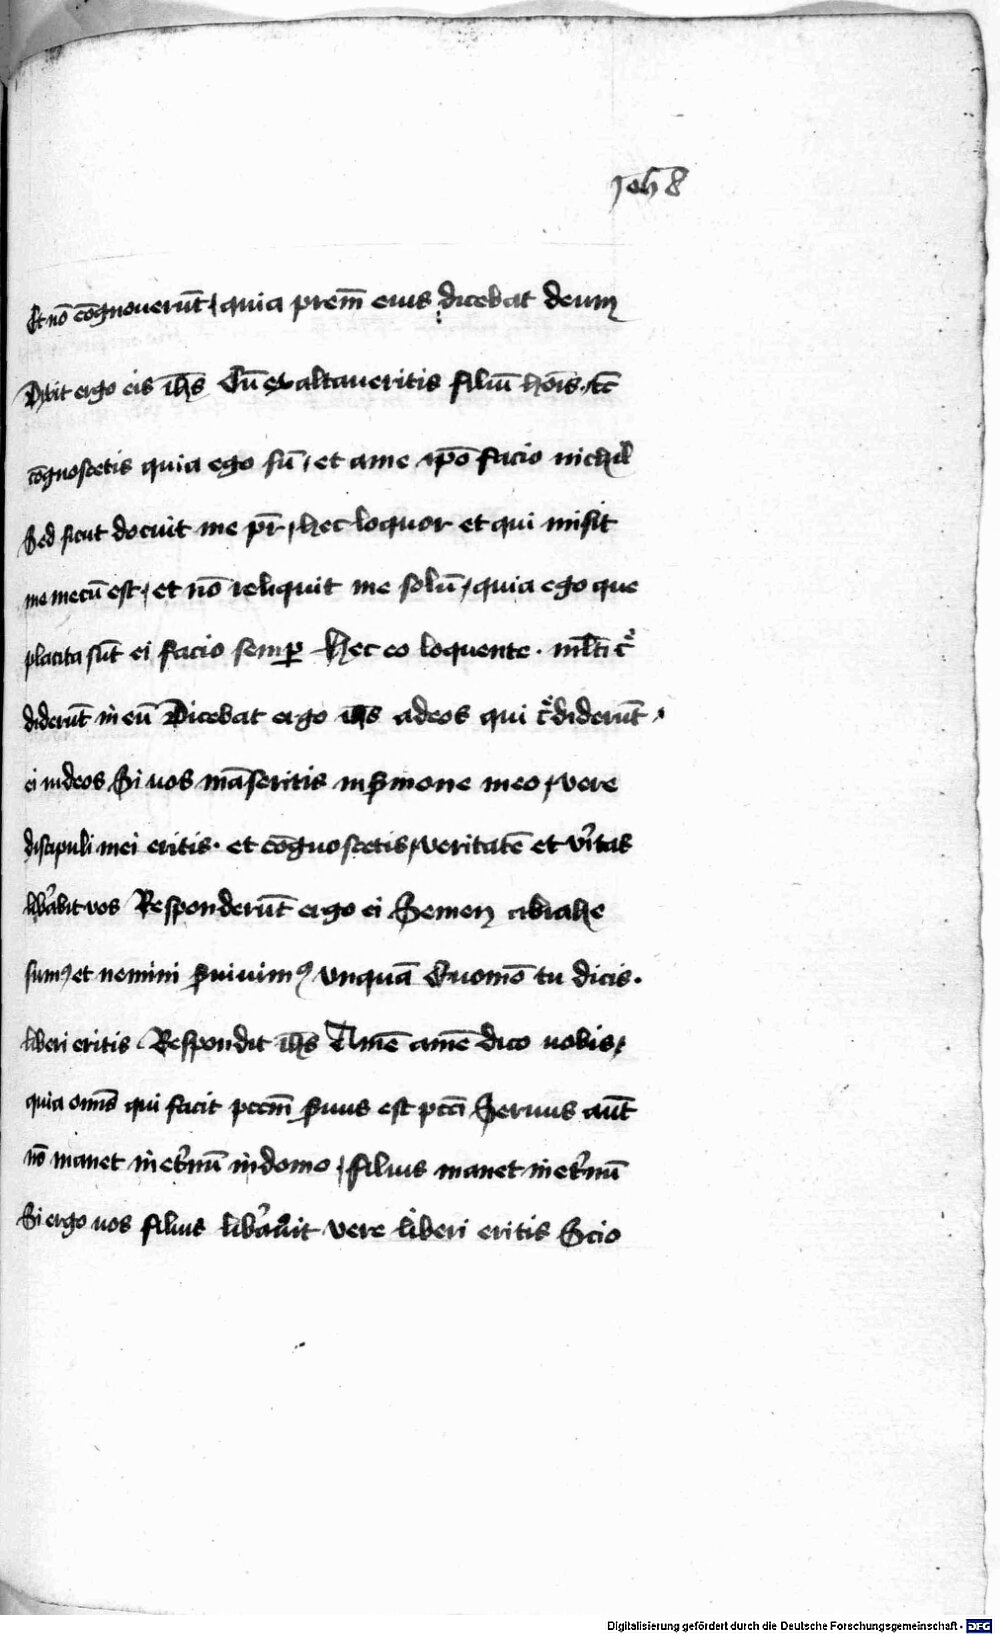 Joh 8
Et nō cōgnouerūt / quia prem̄ eius dicebat deum
Dixit ergo eis ih̄s Cū exaltaueritis filiū hoīs / tc̄
cōgnoscetis quia ego sū / et a me ip̄o facio nichil
Sed sicut docuit me pr̄ / hec loquor et qui misit
me mecū est / et nō reliquit me solū / quia ego que
placita sūt ei facio semꝑ Hec eo loquente · ml̄ti cͤ
diderūt in eū Dicebat ergo ih̄s ad eos qui cͤdiderūt /
ei iudeos Si uos māseritis in ẜmone meo / vere
discipuli mei eritis · et cōgnoscetis / veritatē et v̓itas
lib̓abit vos Responderūt ergo ei Semen abrahe
sumꝰ et nemini ẜuiuimꝰ vnquā Quomō tu dicis ·
liberi eritis · Respondit ih̄s Amē amē dico uobis /
quia om̄s qui facit pccm̄ ẜuus est pcc̄i Seruus aūt
nō manet in et̓nū in domo / filius manet in et̓nū
Si ergo uos filius lib̓auit vere liberi eritis Scio
Digitalisierung gefördert durch die Deutsche Forschungsgemeinschaft - DFG